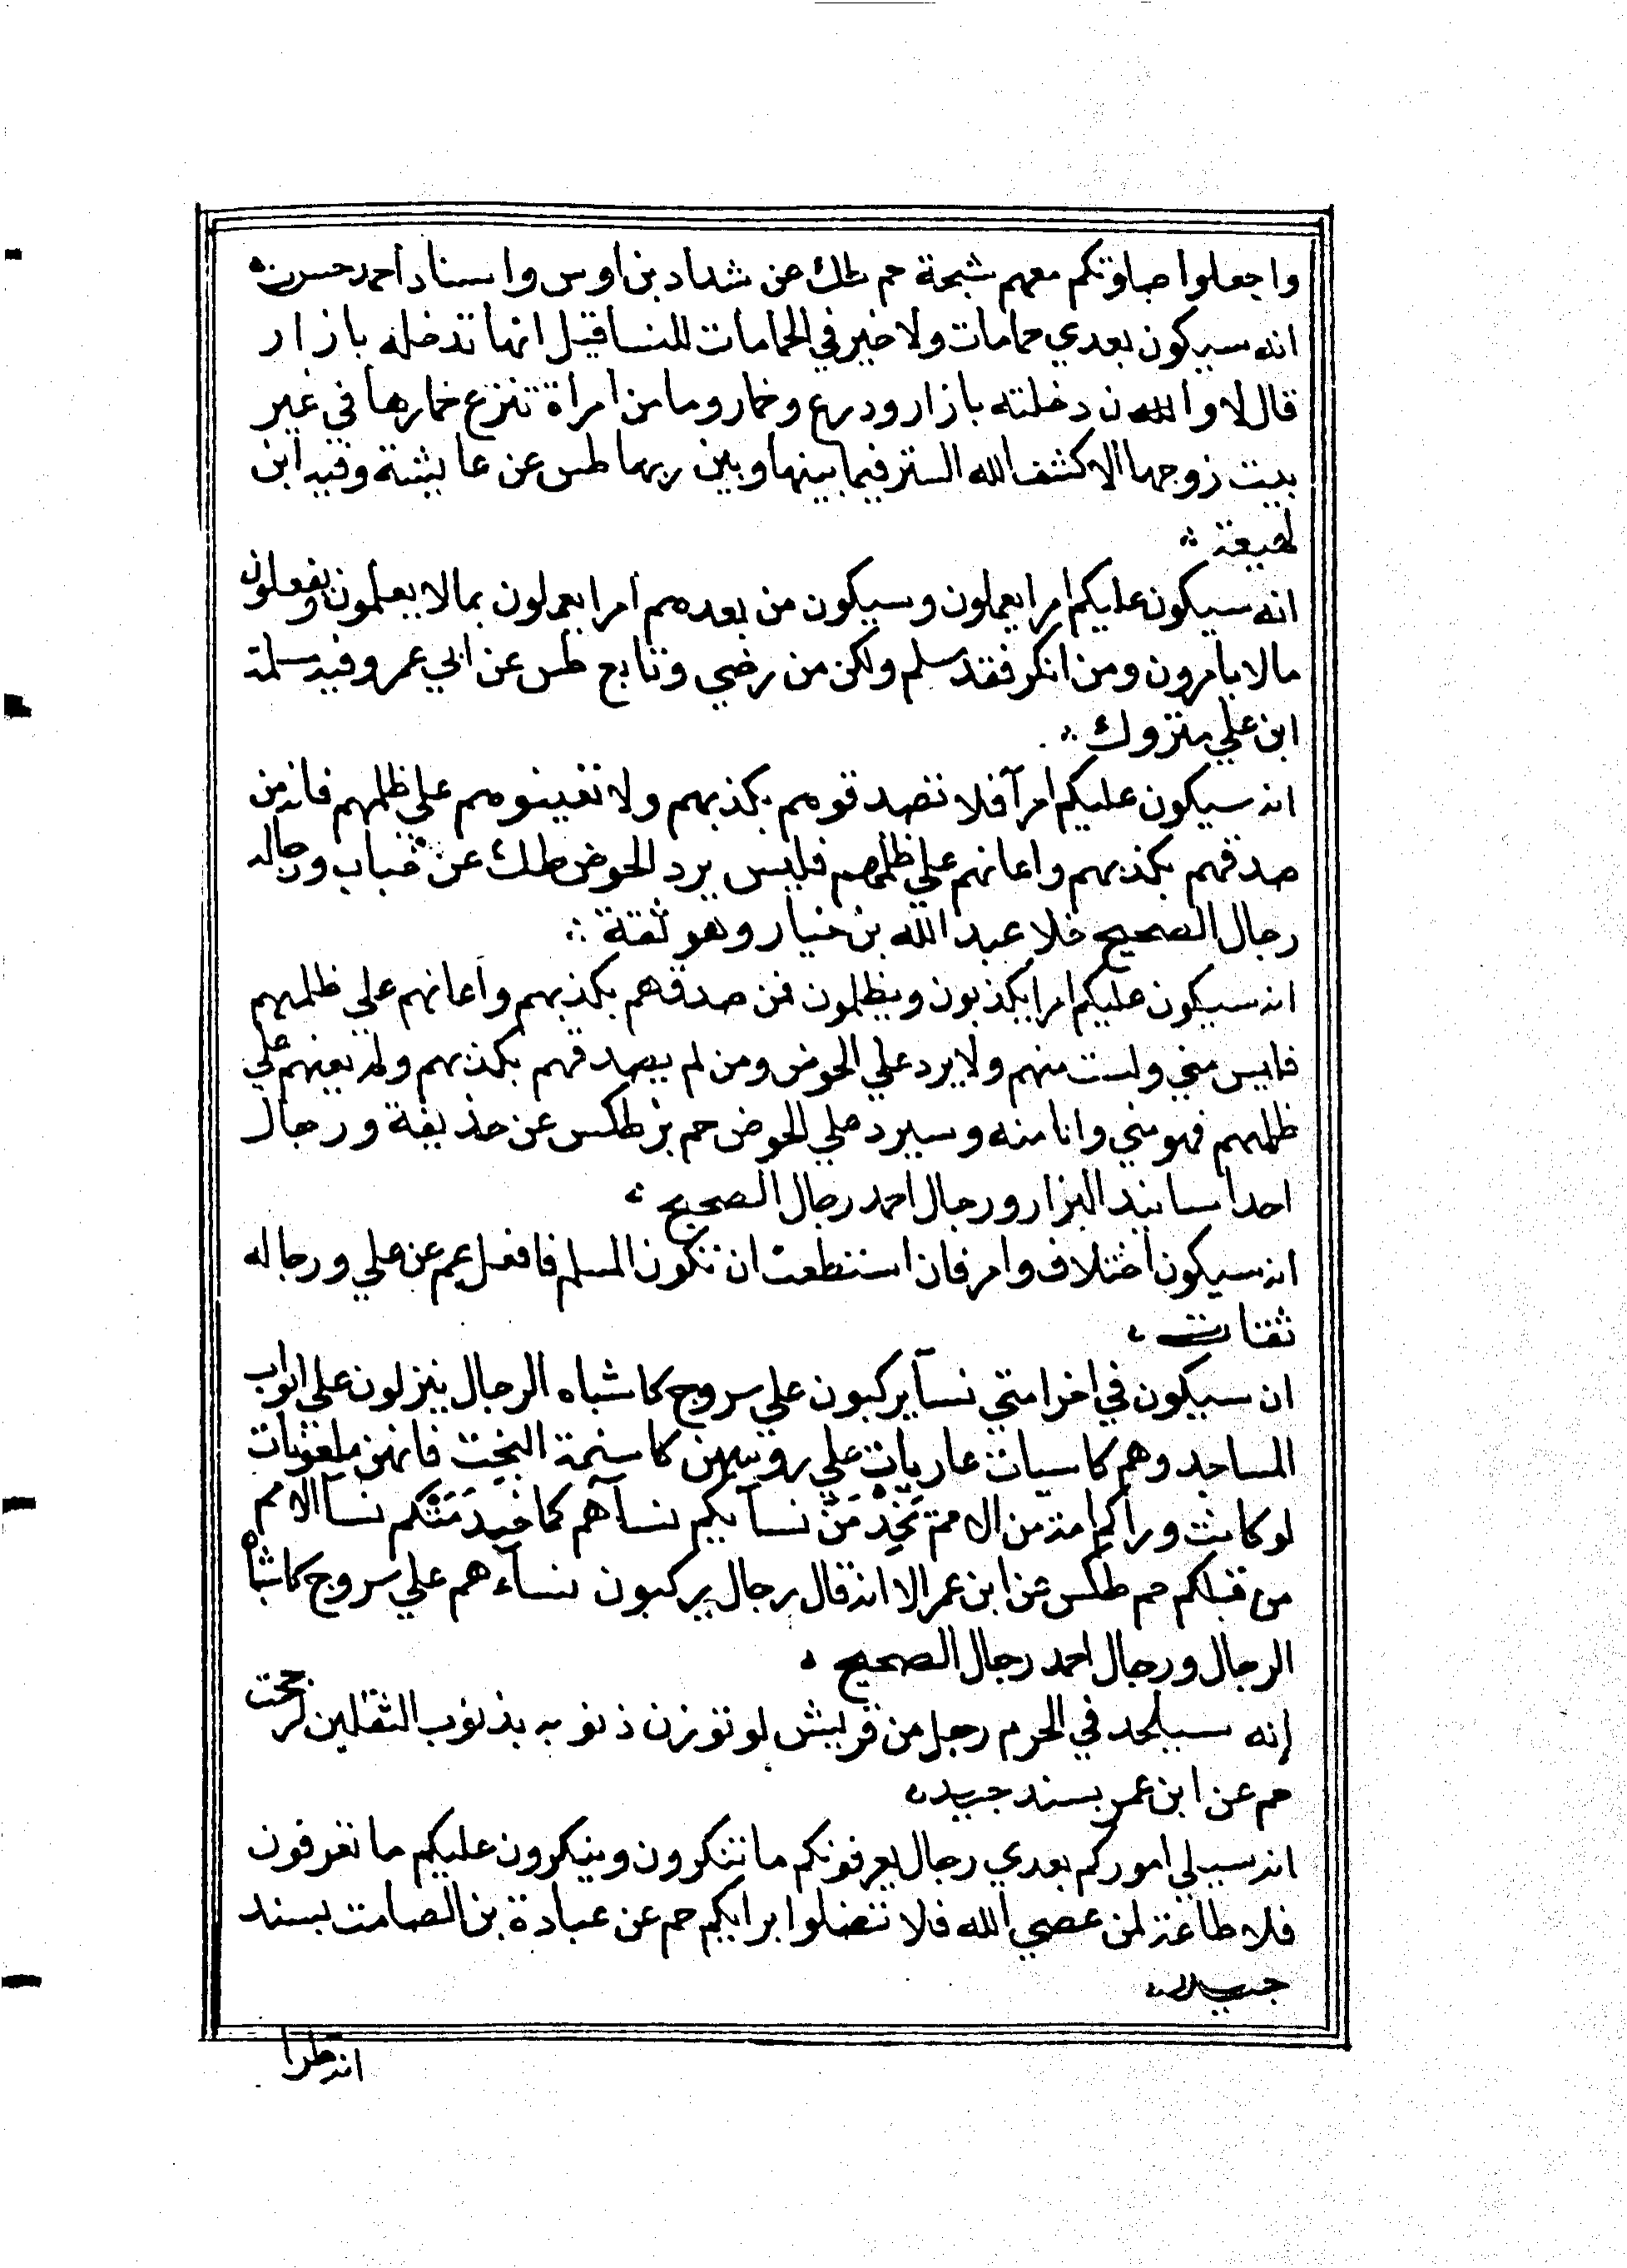 واجعلوا صلوتكم معهم سبحة حم طك عن شداد بن اوس واسناد احمد حسن
انه سيكون بعدي حمامات ولا خير في الحمامات للنسا قيل انها تدخله بازار
قال لا وان دخلته بازار ودرع وخمار وما من امراة تنزع خمارها في غير
بيت زوجها الا كشف الله الستر فيما بينها وبين ربها طس عن عايشة وفيه ابن
لهيعة
انه سيكون عليكم امرا يعملون وسيكون من بعدهم امرا يعملون بما لا يعلمون ويفعلون
مالا يامرون ومن انكر فقد سلم ولكن من رضي وتابع طس عن ابي عمر وفيه سلمة
ابن علي متروك
انه سيكون عليكم امرآ فلا تصدقوهم بكذبهم ولا تعينوهم علي ظلمهم فانه من
صدقهم بكذبهم واعانهم علي ظلمهم فليس يرد الحوض طك عن خباب ورجاله
رجال الصحيح خلا عبد الله بن خيار وهو ثقة
انه سيكون عليكم امرا يكذبون ويظلمون فمن صدقهم بكذبهم واعانهم علي ظلمهم
فليس مني ولست منهم ولا يرد علي الحوض ومن لم يصدقهم بكذبهم ولم يعنهم علي
ظلمهم فهو مني وانا منه وسيرد علي الحوض حم بز طكس عن حذيفة ورجال
احد اسانيد البزار ورجال احمد رجال الصحيح
انه سيكون اختلاف وامر فان استطعت ان تكون المسلم فافعل عم عن علي ورجاله
ثقات
ان سيكون في اخر امتي نسآ يركبون علي سروج كاشباه الرجال ينزلون علي ابواب
المساجد وهم كاسيات عاريات علي روسهن كاسنمة البخت فانهن ملعونات
لو كانت وراكم امة من الامم تَخِدْمَنّ نسآيكم نسآهم كما خيدمَتْكم نسآ الامم
من قبلكم حم طكس عن ابن عمر الا انه قال رجال يركبون نساءهم علي سروج كاشباه
الرجال ورجال احمد رجال الصحيح
إنه سيلحد في الحرم رجل من قريش لو توزن ذنوبه بذنوب الثقلين لرجحت
حم عن ابن عمر بسند جيد
انه سيلي اموركم بعدي رجال يعرفونكم ما تنكرون وينكرون عليكم ما تعرفون
فلا طاعة لمن عصي الله فلا تضلوا برايكم حم عن عبادة بن الصامت بسند
جيد
انه طرا